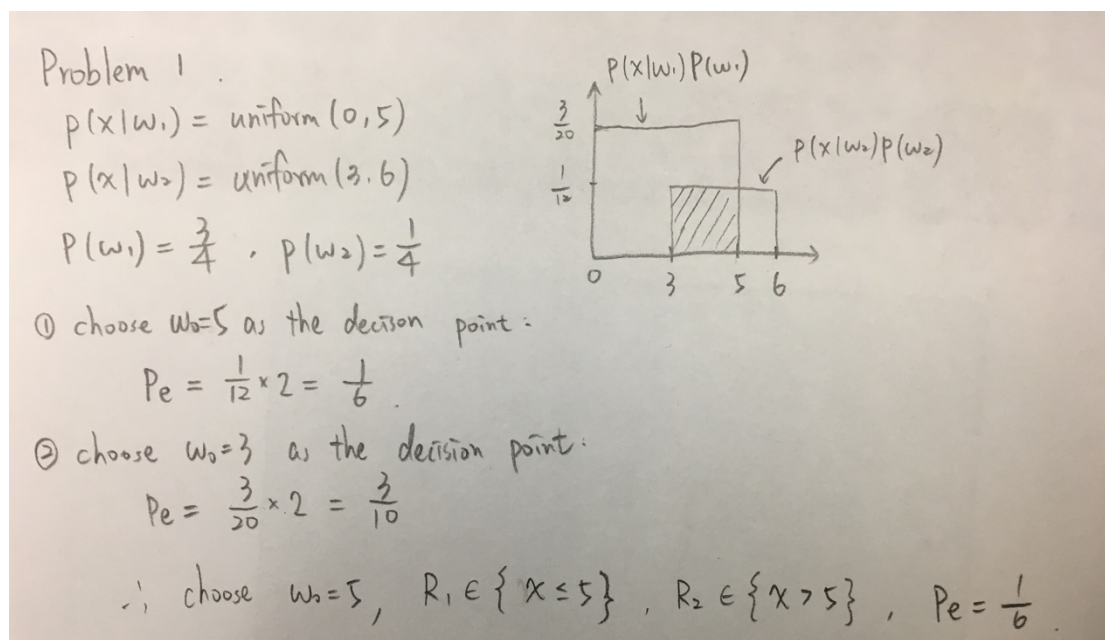 Problem 1 .
p(x|w₁) = uniform (0,5)
p(x|w₂) = uniform (3.6)
P(w₁) = 3/4 , p(w₂) = 1/4
P(x|w₁)P(w₁)
3/20
1/12
P(x|w₂)P(w₂)
0 3 5 6
① choose w₀=5 as the decison point :
Pe = 1/12 × 2 = 1/6 .
② choose w₀=3 as the decision point :
Pe = 3/20 × 2 = 3/10
∴ choose w₀=5, R₁ ∈ { x ≤ 5 } , R₂ ∈ { x > 5 } , Pe = 1/6 .